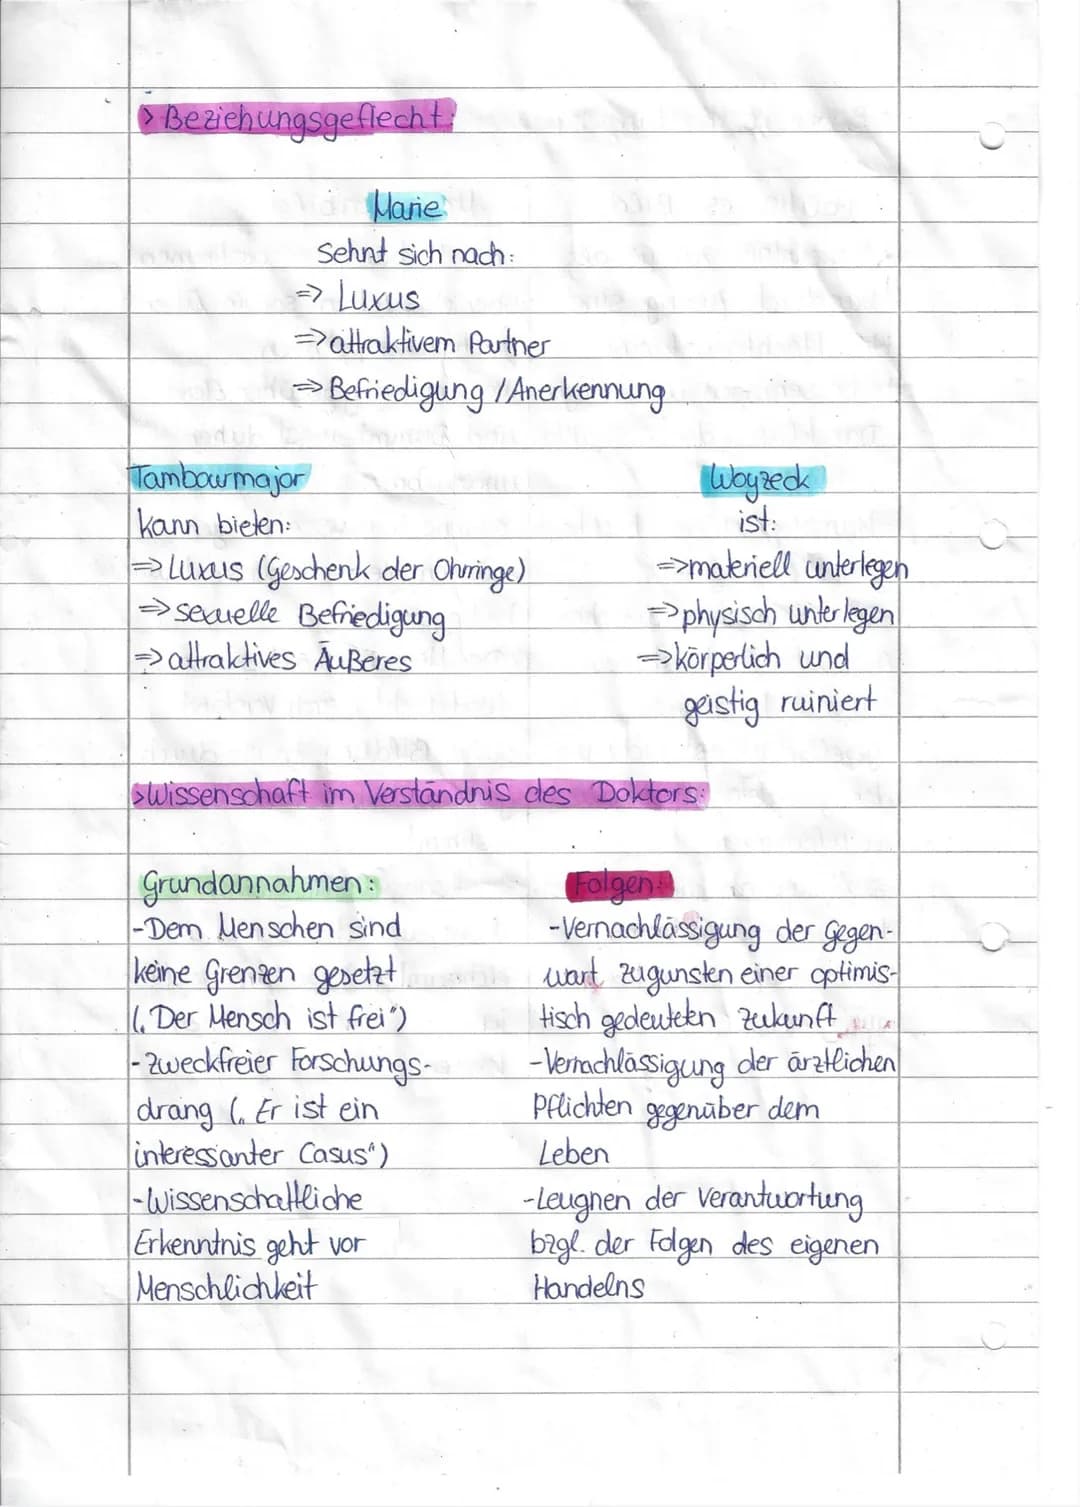 > Beziehungsgeflecht:
Marie:
Sehnt sich nach:
=> Luxus
=> attraktivem Partner
=> Befriedigung / Anerkennung
Tambourmajor
kann bieten:
=> Luxus (Geschenk der Ohrringe)
=> sexuelle Befriedigung
=> attraktives Äußeres
Woyzeck
ist:
=> materiell unterlegen
=> physisch unterlegen
=> körperlich und
geistig ruiniert
> Wissenschaft im Verständnis des Doktors:
Grundannahmen:
- Dem Menschen sind
keine Grenzen gesetzt
(„Der Mensch ist frei“)
- zweckfreier Forschungs-
drang („Er ist ein
interessanter Casus“)
- Wissenschaftliche
Erkenntnis geht vor
Menschlichkeit
Folgen:
- Vernachlässigung der Gegen-
wart zugunsten einer optimis-
tisch gedeuteten Zukunft
- Vernachlässigung der ärztlichen
Pflichten gegenüber dem
Leben
- Leugnen der Verantwortung
bzgl. der Folgen des eigenen
Handelns